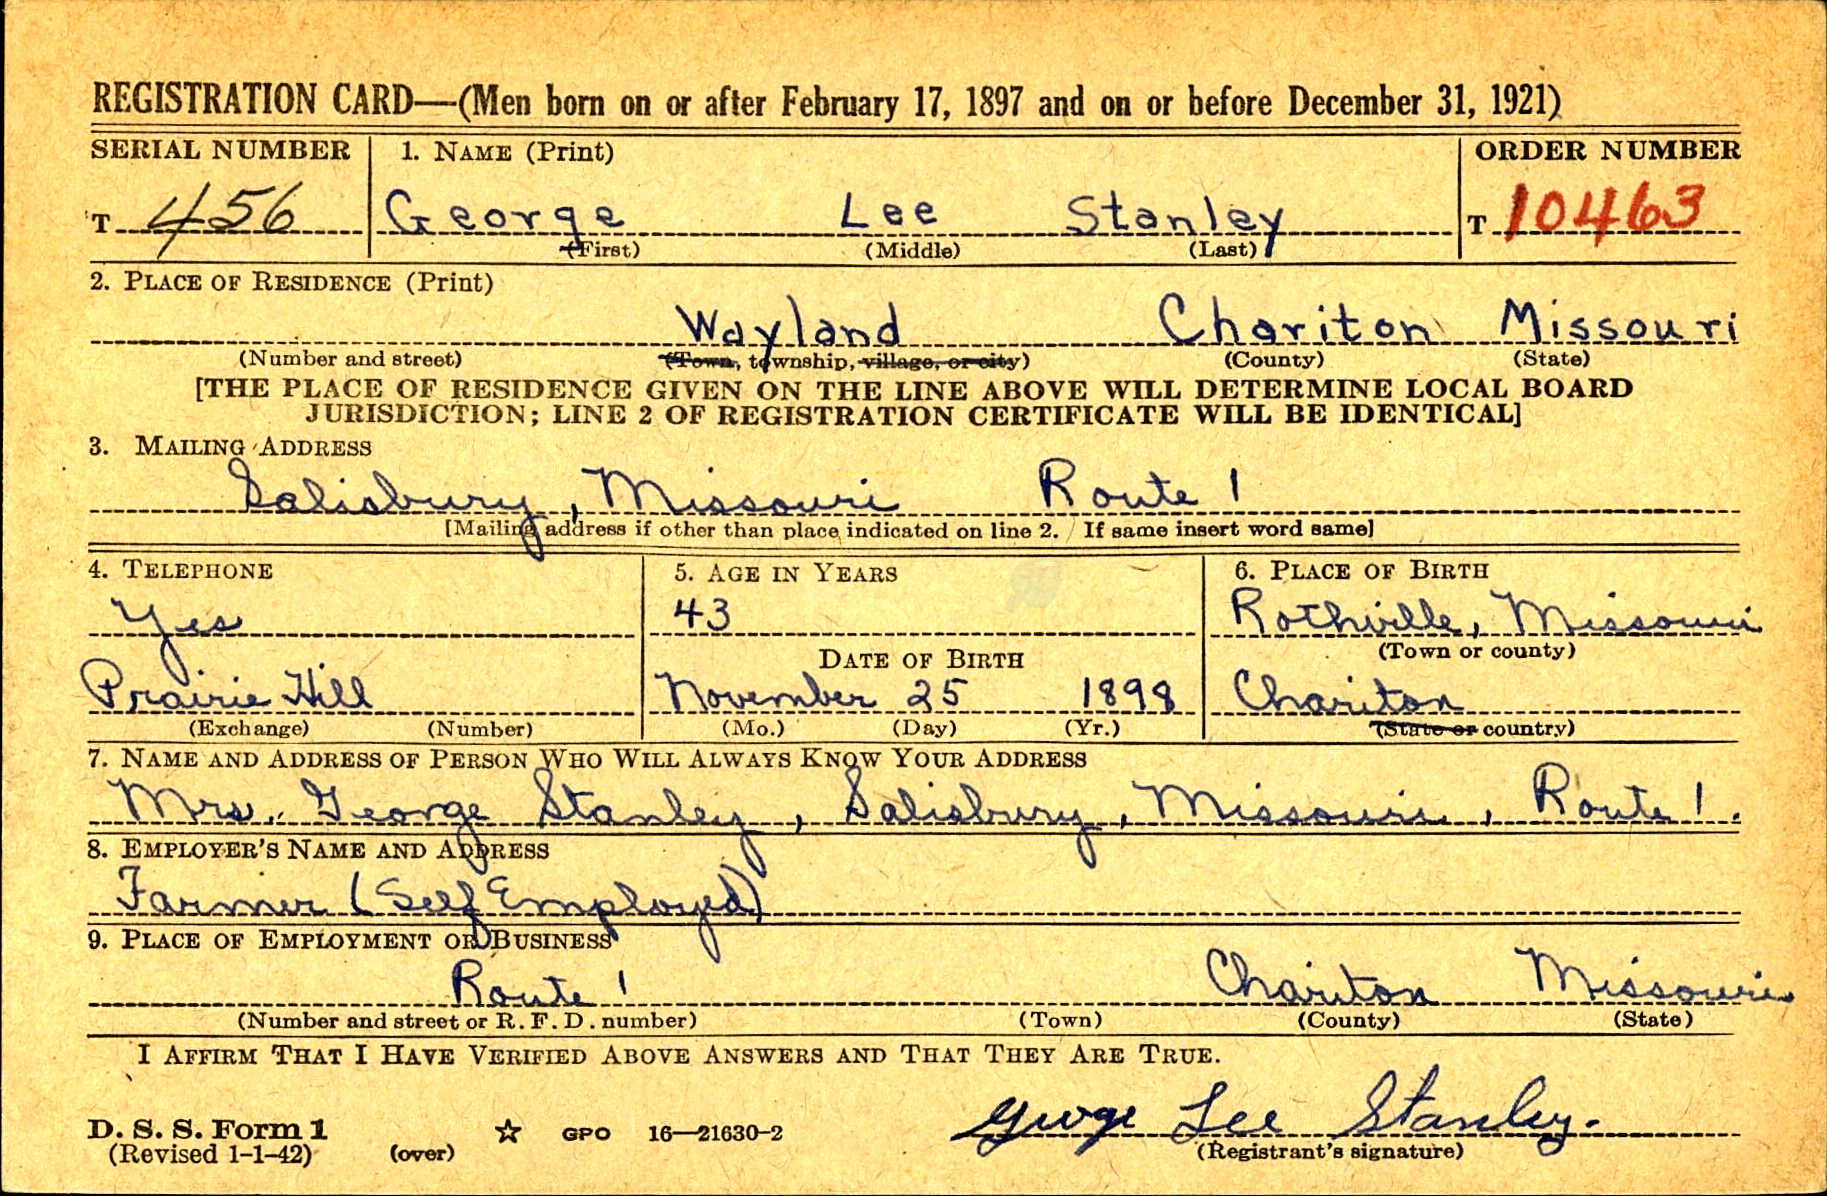 REGISTRATION CARD—(Men born on or after February 17, 1897 and on or before December 31, 1921)
SERIAL NUMBER 1. NAME (Print) ORDER NUMBER
T 456 George Lee Stanley T 10463
(First) (Middle) (Last)
2. PLACE OF RESIDENCE (Print)
Wayland Chariton Missouri
(Number and street) (Town, township, village, or city) (County) (State)
[THE PLACE OF RESIDENCE GIVEN ON THE LINE ABOVE WILL DETERMINE LOCAL BOARD
JURISDICTION; LINE 2 OF REGISTRATION CERTIFICATE WILL BE IDENTICAL]
3. MAILING ADDRESS
Salisbury, Missouri Route 1
[Mailing address if other than place indicated on line 2. If same insert word same]
4. TELEPHONE 5. AGE IN YEARS 6. PLACE OF BIRTH
Yes 43 Rothville, Missouri
DATE OF BIRTH (Town or county)
Prairie Hill November 25 1898 Chariton
(Exchange) (Number) (Mo.) (Day) (Yr.) (State or country)
7. NAME AND ADDRESS OF PERSON WHO WILL ALWAYS KNOW YOUR ADDRESS
Mrs. George Stanley, Salisbury, Missouri, Route 1.
8. EMPLOYER'S NAME AND ADDRESS
Farmer (Self Employed)
9. PLACE OF EMPLOYMENT OR BUSINESS
Route 1 Chariton Missouri
(Number and street or R. F. D. number) (Town) (County) (State)
I AFFIRM THAT I HAVE VERIFIED ABOVE ANSWERS AND THAT THEY ARE TRUE.
George Lee Stanley.
D. S. S. Form 1
(Revised 1-1-42) (over) ☆ GPO 16—21630-2 (Registrant's signature)